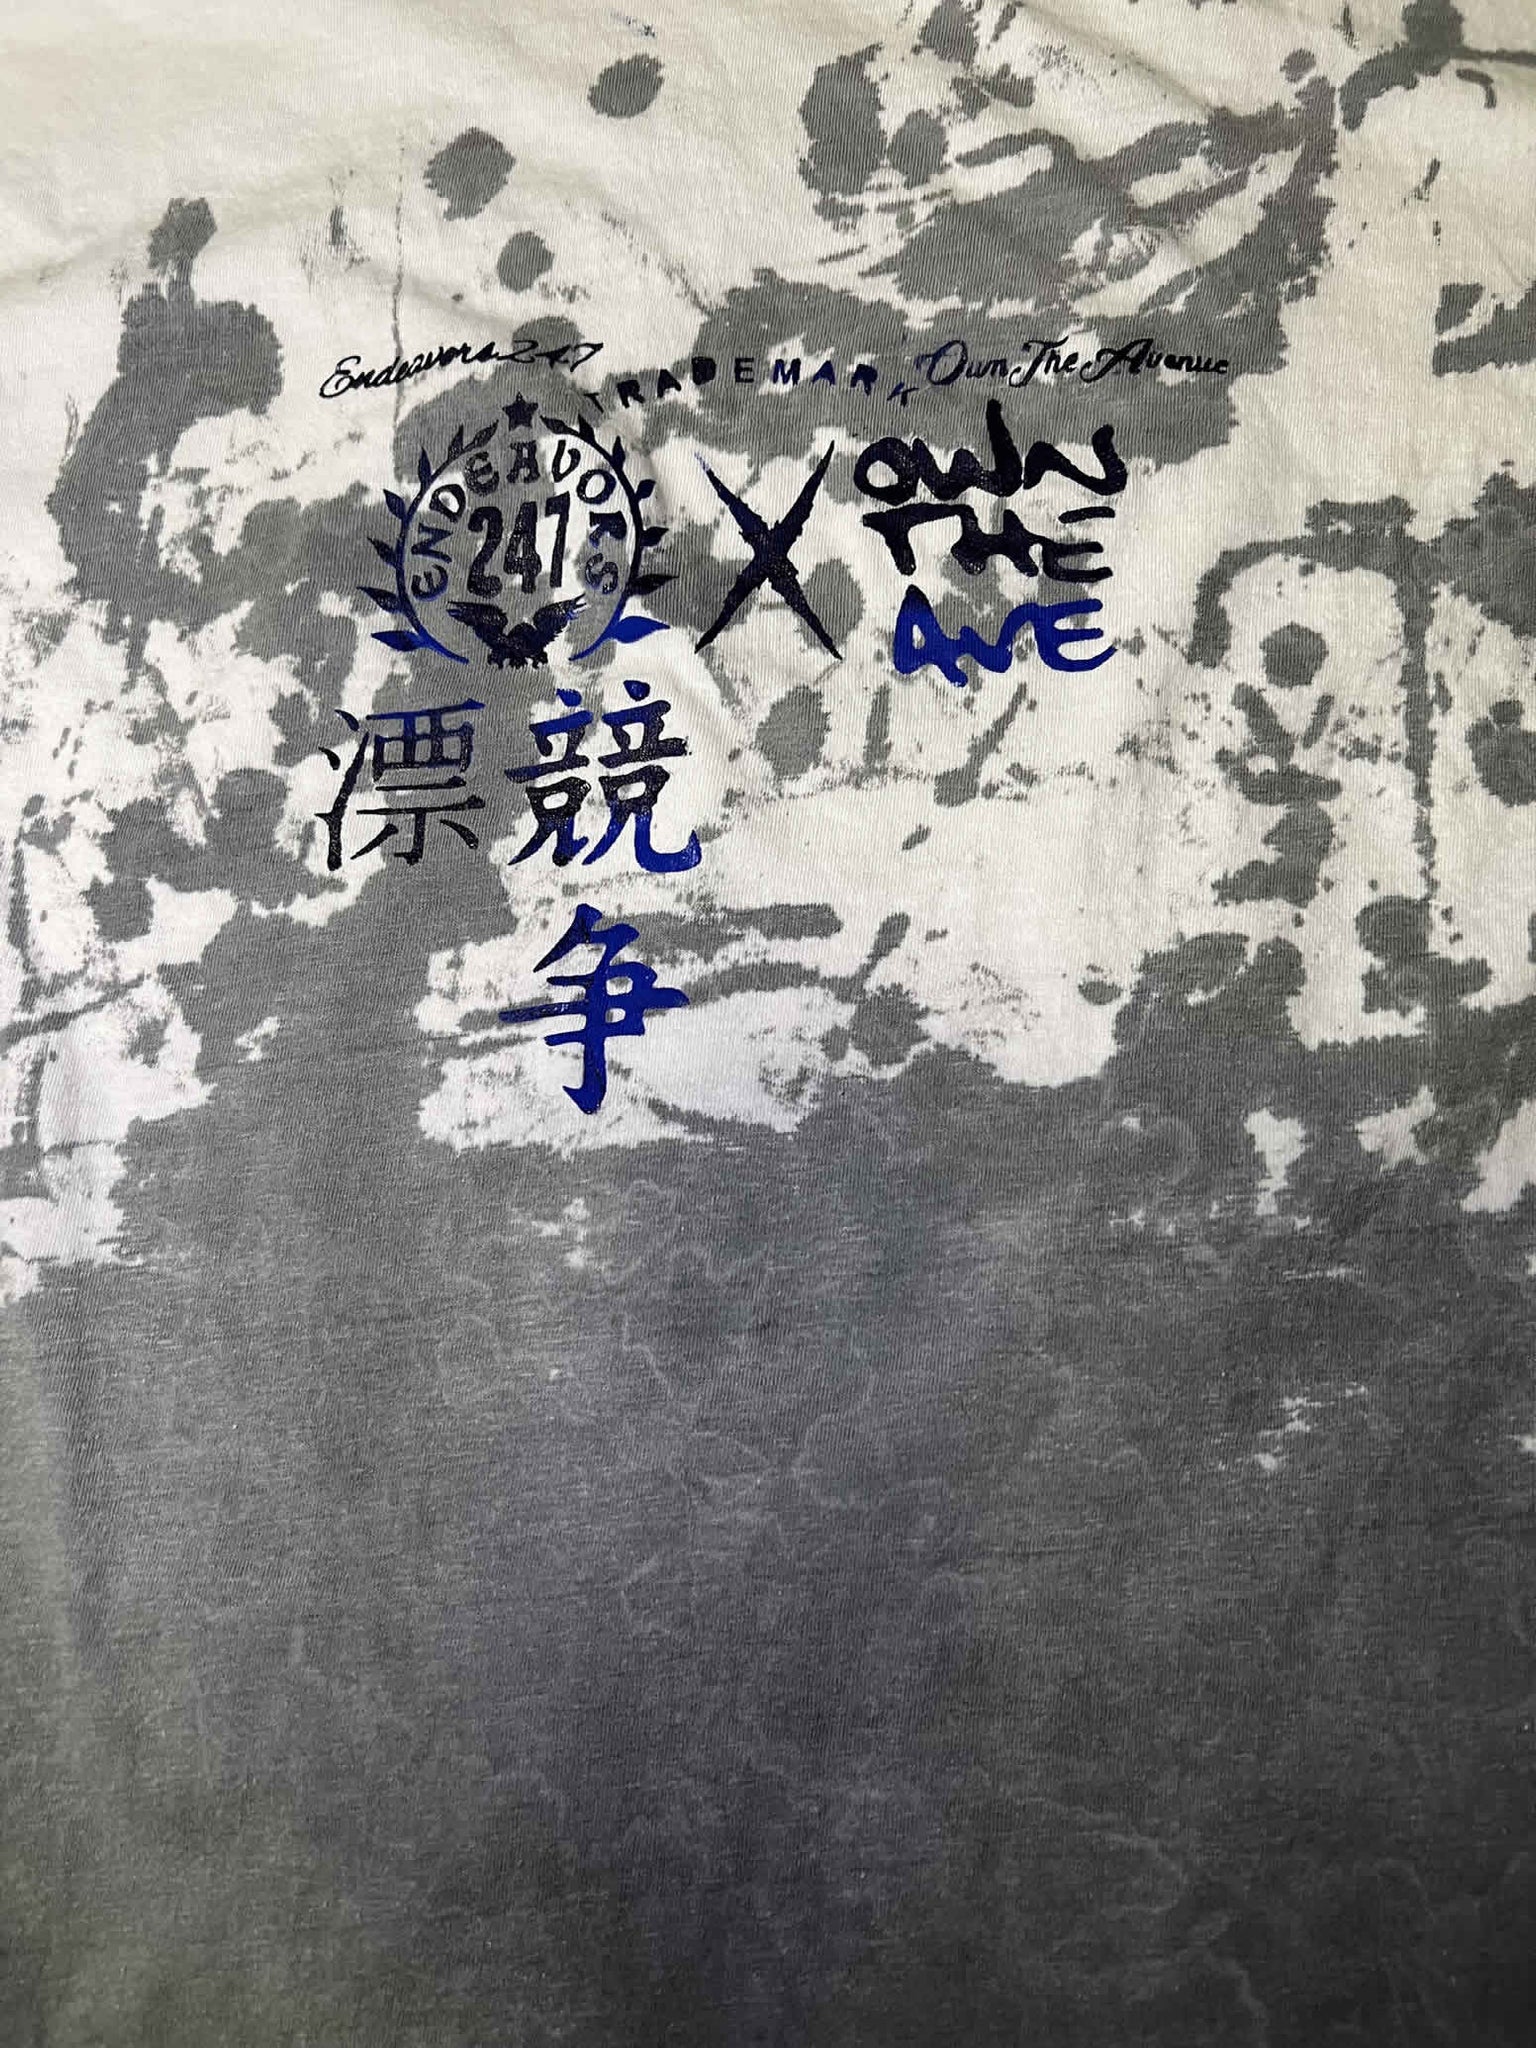 Endeavors 247
TRADEMARK
Own The Avenue
ENDEAVORS
247
X
OWN
THE
AVE
漂 競
争